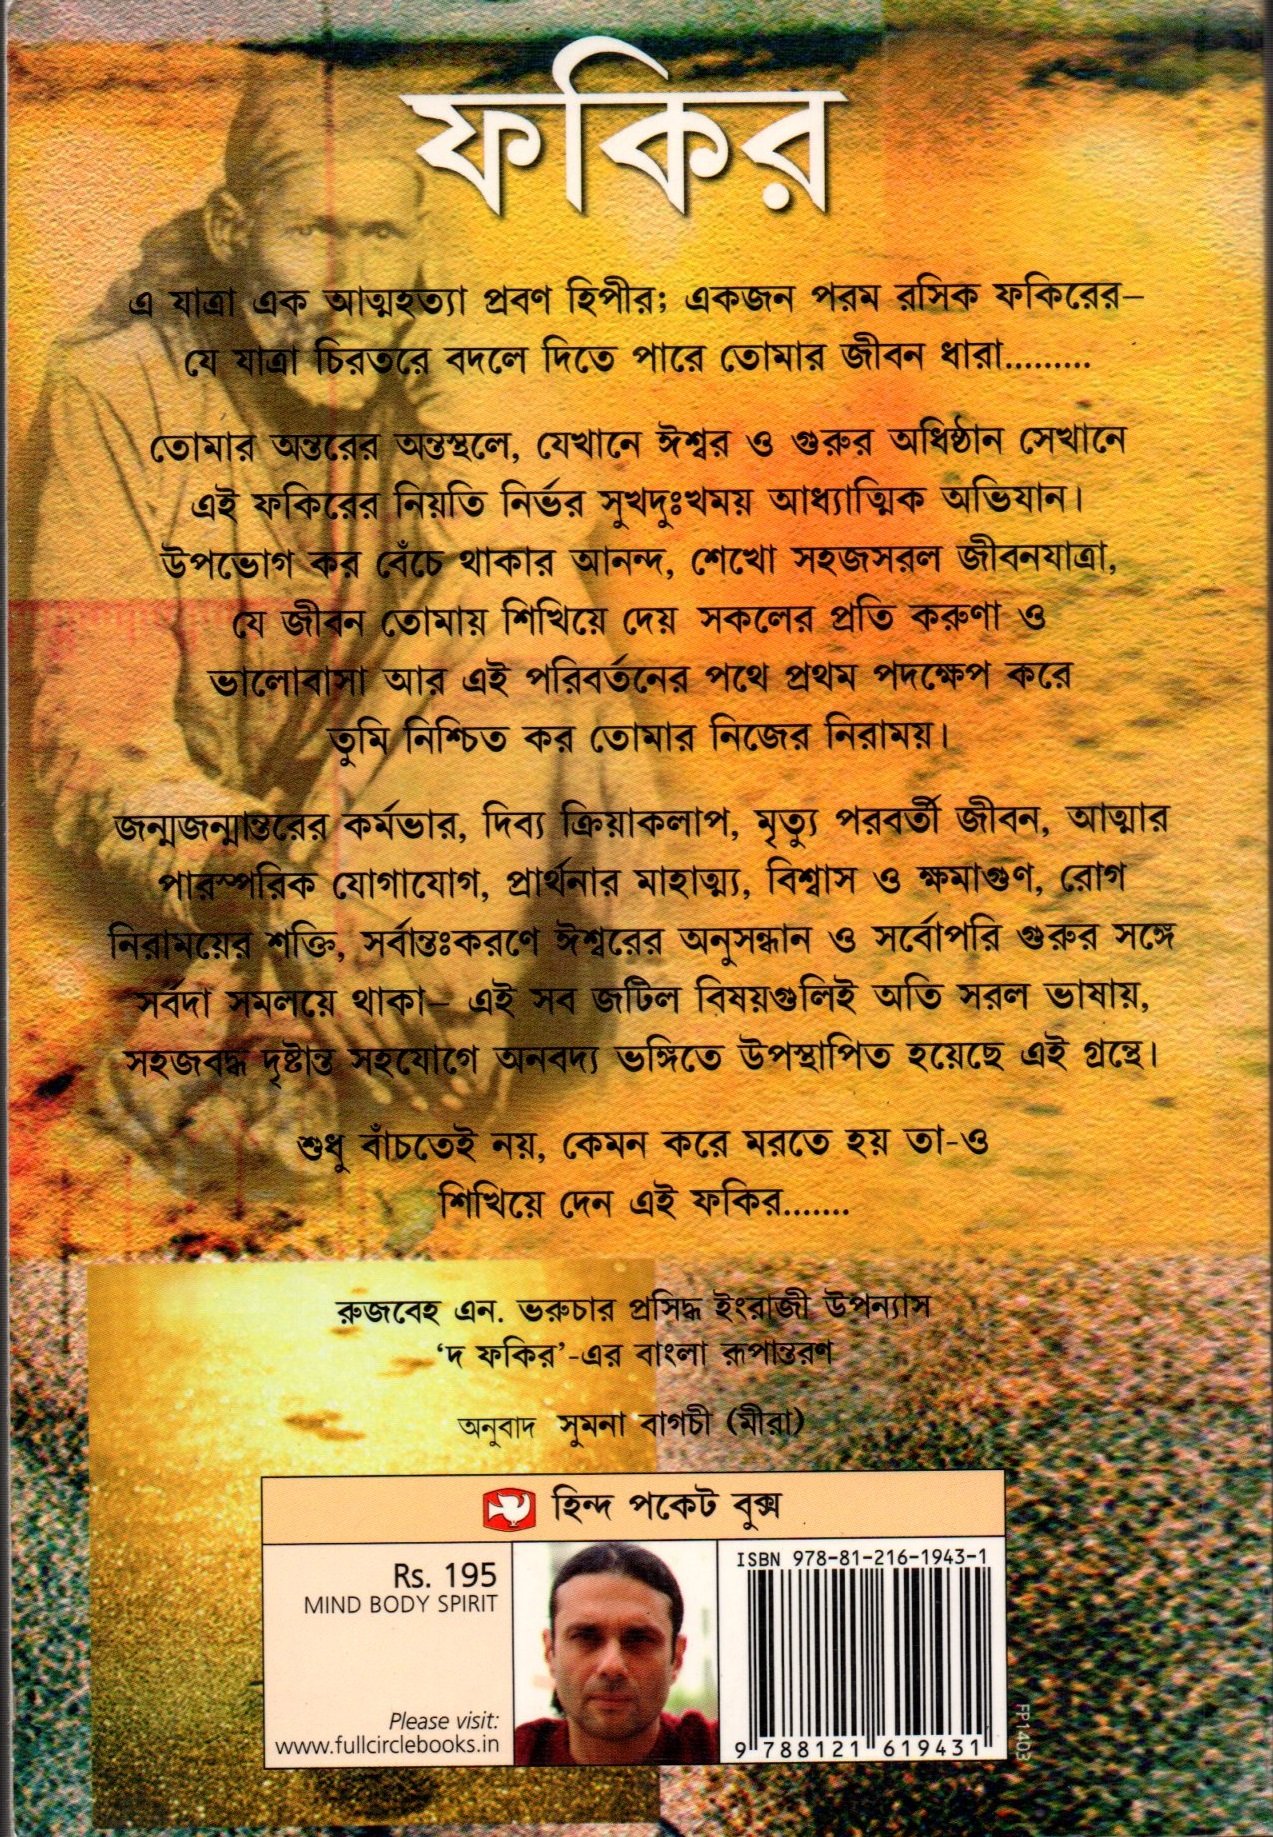 ফকির
এ যাত্রা এক আত্মহত্যা প্রবণ হিপীর; একজন পরম রসিক ফকিরের–
যে যাত্রা চিরতরে বদলে দিতে পারে তোমার জীবন ধারা.........
তোমার অন্তরের অন্তস্থলে, যেখানে ঈশ্বর ও গুরুর অধিষ্ঠান সেখানে
এই ফকিরের নিয়তি নির্ভর সুখদুঃখময় আধ্যাত্মিক অভিযান।
উপভোগ কর বেঁচে থাকার আনন্দ, শেখো সহজসরল জীবনযাত্রা,
যে জীবন তোমায় শিখিয়ে দেয় সকলের প্রতি করুণা ও
ভালোবাসা আর এই পরিবর্তনের পথে প্রথম পদক্ষেপ করে
তুমি নিশ্চিত কর তোমার নিজের নিরাময়।
জন্মজন্মান্তরের কর্মভার, দিব্য ক্রিয়াকলাপ, মৃত্যু পরবর্তী জীবন, আত্মার
পারস্পরিক যোগাযোগ, প্রার্থনার মাহাত্ম্য, বিশ্বাস ও ক্ষমাগুণ, রোগ
নিরাময়ের শক্তি, সর্বান্তঃকরণে ঈশ্বরের অনুসন্ধান ও সর্বোপরি গুরুর সঙ্গে
সর্বদা সমলয়ে থাকা– এই সব জটিল বিষয়গুলিই অতি সরল ভাষায়,
সহজবদ্ধ দৃষ্টান্ত সহযোগে অনবদ্য ভঙ্গিতে উপস্থাপিত হয়েছে এই গ্রন্থে।
শুধু বাঁচতেই নয়, কেমন করে মরতে হয় তা-ও
শিখিয়ে দেন এই ফকির.......
রুজবেহ এন. ভরুচার প্রসিদ্ধ ইংরাজী উপন্যাস
‘দ ফকির’-এর বাংলা রূপান্তরণ
অনুবাদ সুমনা বাগচী (মীরা)
হিন্দ পকেট বুক্স
Rs. 195
MIND BODY SPIRIT
Please visit:
www.fullcirclebooks.in
ISBN 978-81-216-1943-1
9 788121 619431
FP1403